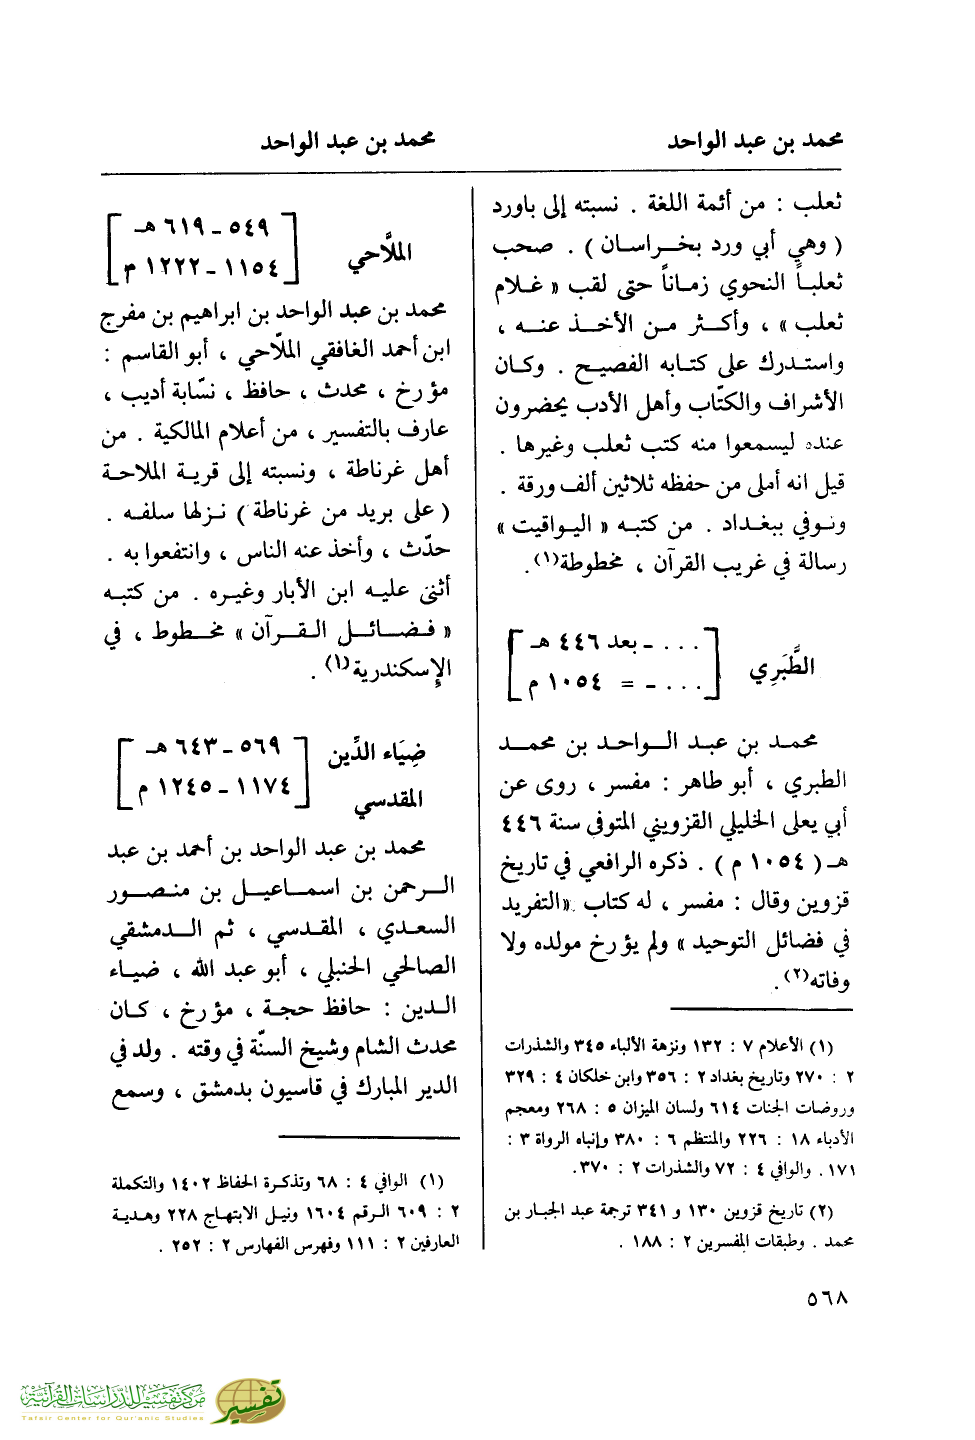 محمد بن عبد الواحد
محمد بن عبد الواحد
ثعلب : من أئمة اللغة . نسبته إلى باورد
( وهي أبي ورد بخراسان ) . صحب
ثعلباً النحوي زماناً حتى لقب « غلام
ثعلب » ، وأكثر من الأخذ عنه ،
واستدرك على كتابه الفصيح . وكان
الأشراف والكتّاب وأهل الأدب يحضرون
عنده ليسمعوا منه كتب ثعلب وغيرها .
قيل انه أملى من حفظه ثلاثين ألف ورقة .
وتوفي ببغداد . من كتبه « اليواقيت »
رسالة في غريب القرآن ، مخطوطة(١).
الطَّبَرِي
[ . . . ـ بعد ٤٤٦ هـ
. . . ـ = ١٠٥٤ م ]
محمد بن عبد الواحد بن محمد
الطبري ، أبو طاهر : مفسر ، روى عن
أبي يعلى الخليلي القزويني المتوفى سنة ٤٤٦
هـ ( ١٠٥٤ م ) . ذكره الرافعي في تاريخ
قزوين وقال : مفسر ، له كتاب «التفريد
في فضائل التوحيد » ولم يؤرخ مولده ولا
وفاته(٢).
(١) الأعلام ٧ : ١٣٢ ونزهة الألباء ٣٤٥ والشذرات
٢ : ٢٧٠ وتاريخ بغداد ٢ : ٣٥٦ وابن خلكان ٤ : ٣٢٩
وروضات الجنات ٦١٤ ولسان الميزان ٥ : ٢٦٨ ومعجم
الأدباء ١٨ : ٢٢٦ والمنتظم ٦ : ٣٨٠ وإنباه الرواة ٣ :
١٧١ . والوافي ٤ : ٧٢ والشذرات ٢ : ٣٧٠.
(٢) تاريخ قزوين ١٣٠ و ٣٤١ ترجمة عبد الجبار بن
محمد . وطبقات المفسرين ٢ : ١٨٨ .
الملَّاحي
[ ٥٤٩ ـ ٦١٩ هـ
١١٥٤ ـ ١٢٢٢ م ]
محمد بن عبد الواحد بن ابراهيم بن مفرج
ابن أحمد الغافقي الملّاحي ، أبو القاسم :
مؤرخ ، محدث ، حافظ ، نسّابة أديب ،
عارف بالتفسير ، من أعلام المالكية . من
أهل غرناطة ، ونسبته إلى قرية الملاحة
( على بريد من غرناطة ) نزلها سلفه .
حدّث ، وأخذ عنه الناس ، وانتفعوا به .
أثنى عليه ابن الأبار وغيره . من كتبه
« فضائل القرآن » مخطوط ، في
الإسكندرية(١) .
ضِيَاء الدِّين
المقدسي
[ ٥٦٩ ـ ٦٤٣ هـ
١١٧٤ ـ ١٢٤٥ م ]
محمد بن عبد الواحد بن أحمد بن عبد
الرحمن بن اسماعيل بن منصور
السعدي ، المقدسي ، ثم الدمشقي
الصالحي الحنبلي ، أبو عبد الله ، ضياء
الدين : حافظ حجة ، مؤرخ ، كان
محدث الشام وشيخ السنّة في وقته . ولد في
الدير المبارك في قاسيون بدمشق ، وسمع
(١) الوافي ٤ : ٦٨ وتذكرة الحفاظ ١٤٠٢ والتكملة
٢ : ٦٠٩ الرقم ١٦٠٤ ونيل الابتهاج ٢٢٨ وهدية
العارفين ٢ : ١١١ وفهرس الفهارس ٢ : ٢٥٢ .
٥٦٨
مركز تفسير للدراسات القرآنية
Tafsir Center for Qur'anic Studies
تفسير